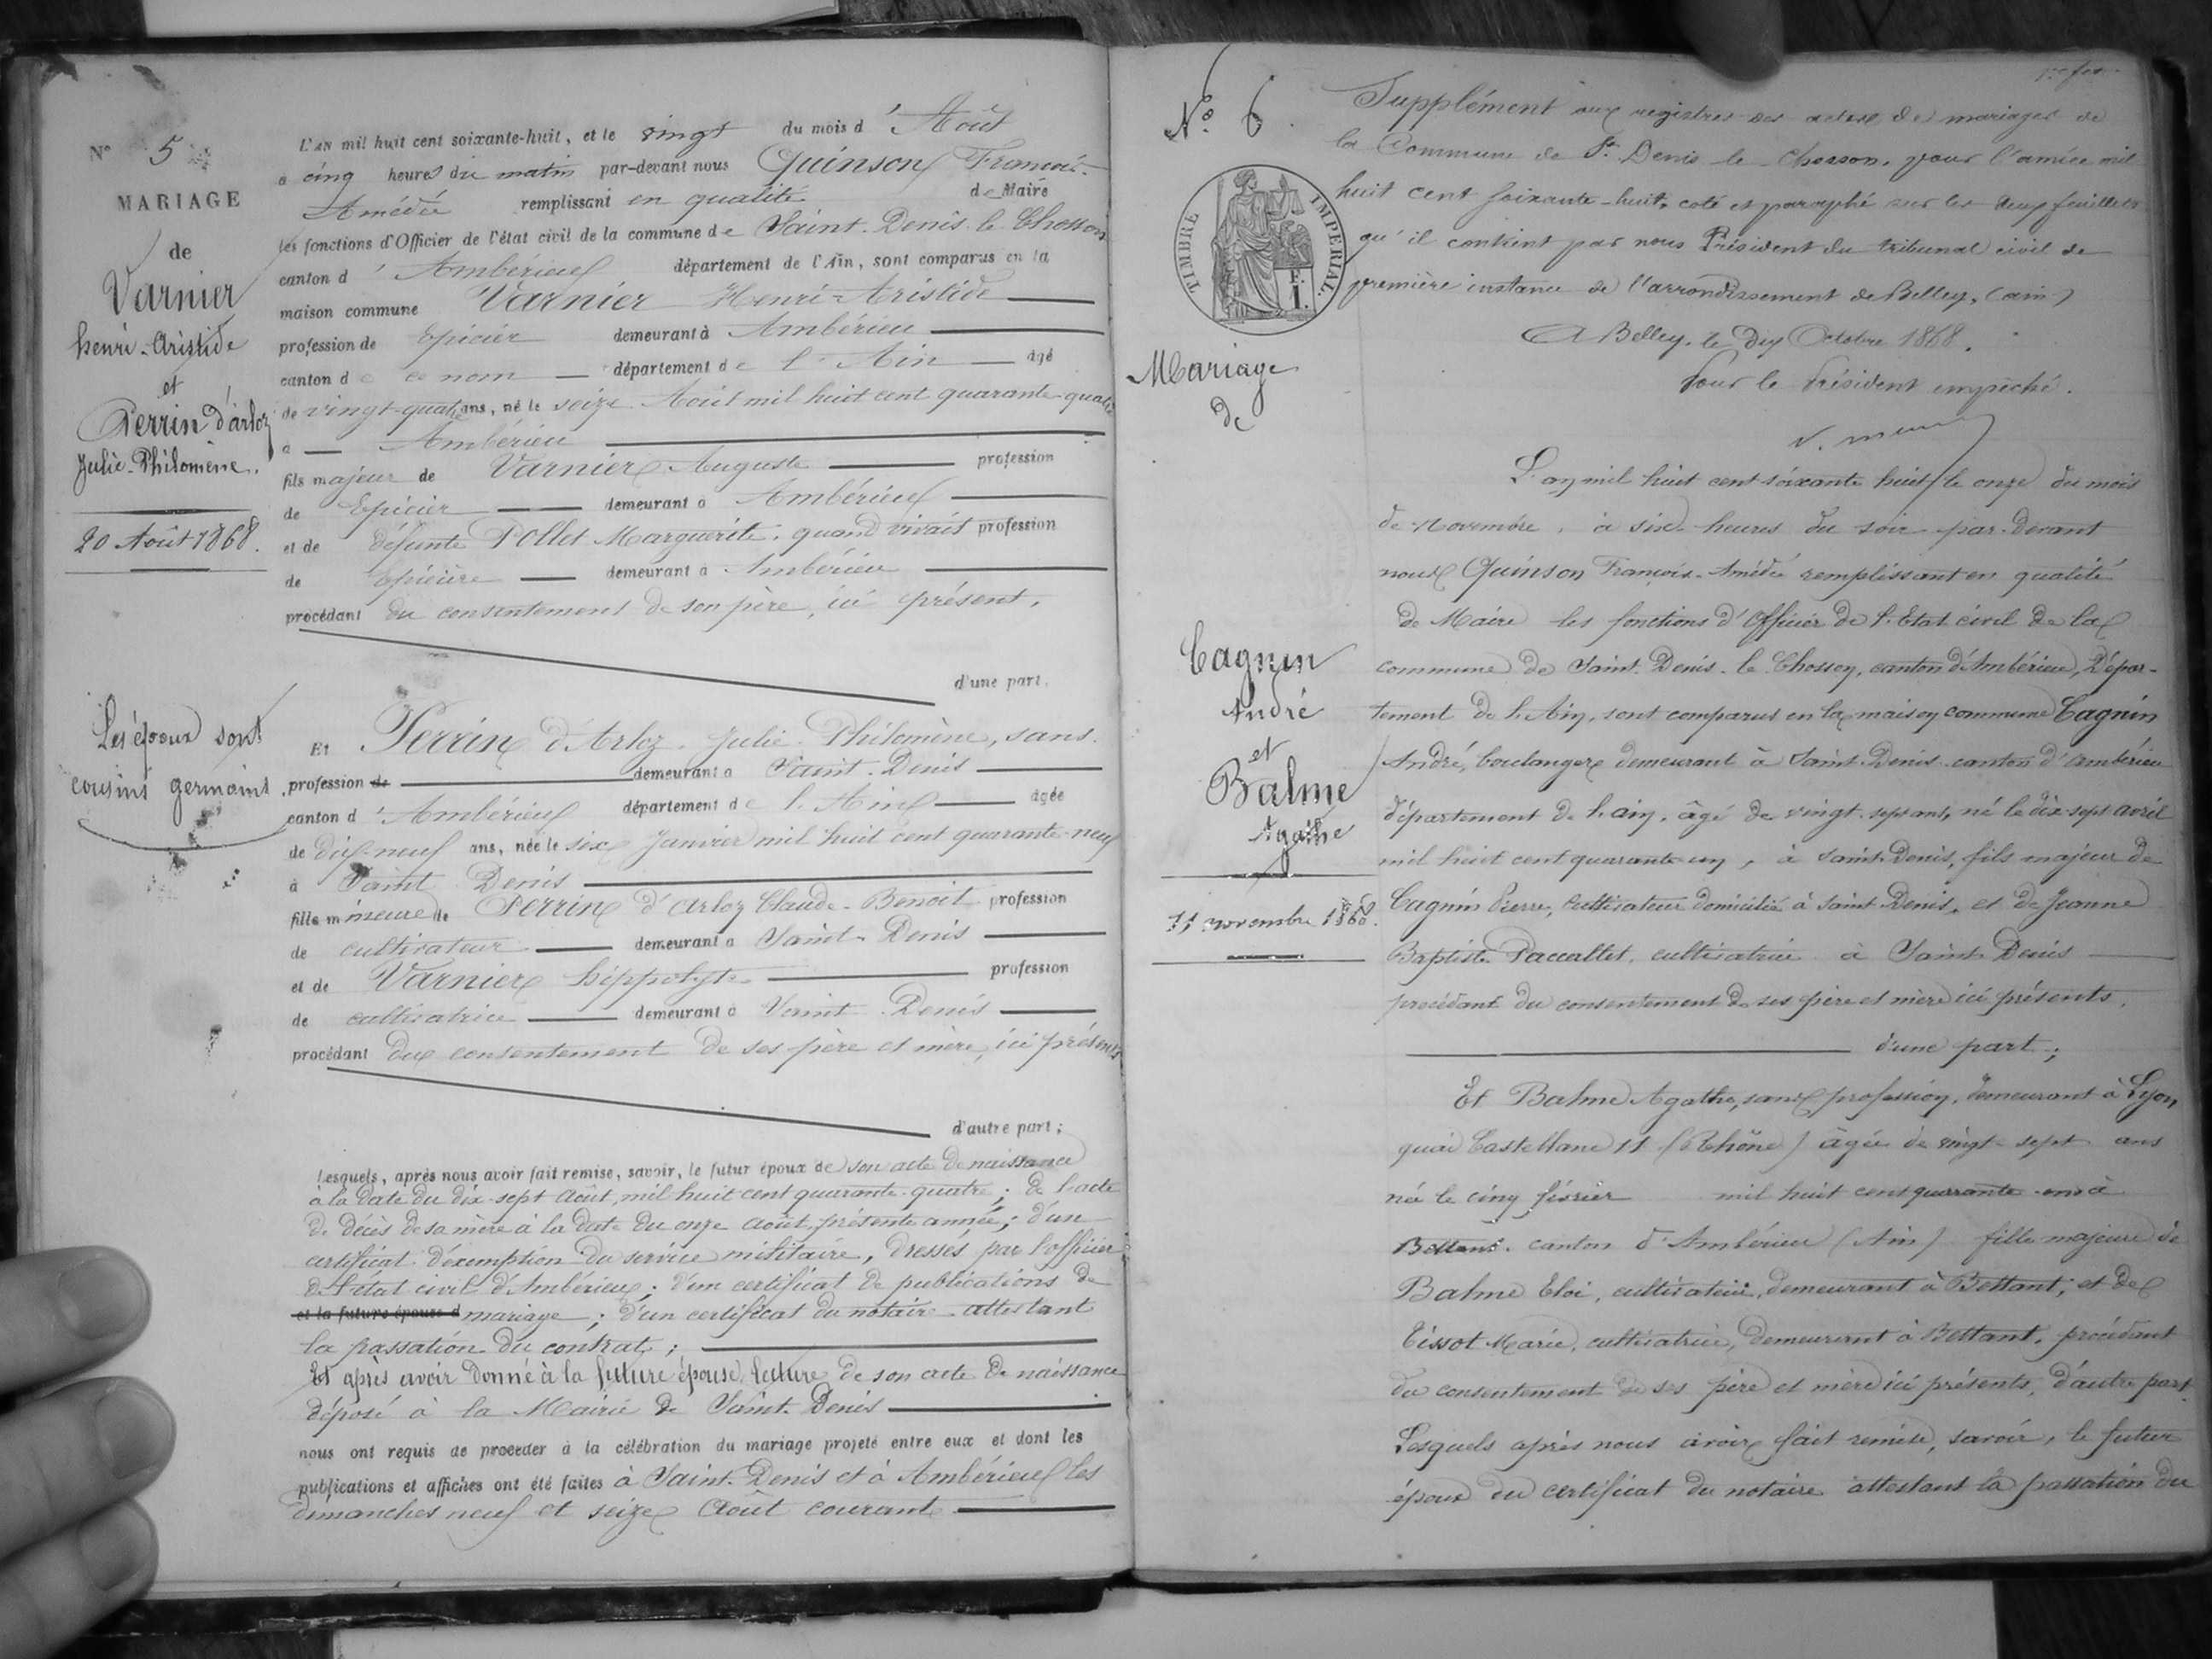 N° 5
MARIAGE
de
Varnier
henri-Aristide
et
Perrin d'arloz
Julie-Philomène.
20 Août 1868.
Les époux sont
cousins germains.
L'AN mil huit cent soixante-huit, et le vingt du mois d'Août
a cinq heures du matin par-devant nous Quinson François-
Amédée remplissant en qualité de Maire
les fonctions d'Officier de l'état civil de la commune de Saint-Denis-le-Chosson
canton d'Ambérieu département de l'Ain, sont comparus en la
maison commune Varnier Henri-Aristide
profession de Epicier demeurant à Ambérieu
canton de ce nom département de l'Ain âgé
de vingt-quatre ans, né le seize Août mil huit cent quarante-quatre
a Ambérieu
fils majeur de Varnier Auguste profession
de Epicier demeurant a Ambérieu
et de défunte Pollet Marguerite, quand vivait profession
de épicière demeurant a Ambérieu
procédant du consentement de son père, ici présent,
d'une part.
Et Perrin d'Arloz Julie-Philomène, sans
profession de demeurant a Saint-Denis
canton d'Ambérieu département de l'Ain âgée
de dix-neuf ans, née le six Janvier mil huit cent quarante-neuf
à Saint Denis
fille mineure de Perrin d'arloz Claude-Benoit profession
de cultivateur demeurant a Saint-Denis
et de Varnier hippolyte profession
de cultivatrice demeurant a Saint-Denis
procédant du consentement de ses père et mère, ici présents
d'autre part;
Lesquels, après nous avoir fait remise, savoir, le futur époux de son acte de naissance
à la date du dix-sept Août, mil huit cent quarante-quatre; de l'acte
de décès de sa mère à la date du onze août, présente année; d'un
certificat d'exemption du service militaire, dressés par l'officier
de l'état civil d'Ambérieu; d'un certificat de publications de
et la future épouse d mariage; d'un certificat du notaire attestant
la passation du contrat;
Et après avoir donné à la future épouse lecture de son acte de naissance
déposé à la Mairie de Saint-Denis
nous ont requis de proceder à la célébration du mariage projeté entre eux et dont les
publications et affiches ont été faites à Saint-Denis et à Ambérieu les
dimanches neuf et seize Août courant
N° 6.
TIMBRE IMPERIAL.
F. 1.
Mariage
de
Cagnin
André
et
Balme
Agathe
11 novembre 1868.
Supplément aux registres des actes de mariages de
la Commune de St Denis le Chosson, pour l'année mil
huit cent soixante-huit, coté et paraphé sur les deux feuillets
qu'il contient par nous Président du tribunal civil de
première instance de l'arrondissement de Belley, (ain)
A Belley, le dix Octobre 1868.
Pour le Président empêché.
L'an mil huit cent soixante huit, le onze du mois
de Novembre, à six heures du soir par-devant
nous Quinson François-Amédée remplissant en qualité
de Maire les fonctions d'Officier de l'Etat civil de la
commune de Saint-Denis-le-Chosson, canton d'Ambérieu, Dépar-
tement de l'Ain, sont comparus en la maison commune Cagnin
André, boulanger demeurant à Saint-Denis canton d'Ambérieu
département de l'ain, âgé de vingt-sept ans, né le dix-sept avril
mil huit cent quarante un, à Saint-Denis, fils majeur de
Cagnin Pierre, cultivateur domicilié à Saint Denis, et de Jeanne
Baptiste Paccallet, cultivatrice à Saint Denis
procédant du consentement de ses père et mère ici présents,
d'une part;
Et Balme Agathe, sans profession, demeurant à Lyon,
quai Castellane 11 (Rhône) âgée de vingt-sept ans
née le cinq février mil huit cent quarante-un à
Bettant, canton d'Ambérieu (Ain) fille majeure de
Balme Eloi, cultivateur, demeurant à Bettant, et de
Tissot Marie, cultivatrice, demeurant à Bettant, procédant
du consentement de ses père et mère ici présents, d'autre part.
Lesquels après nous avoir fait remise, savoir, le futur
époux du certificat du notaire attestant la passation du